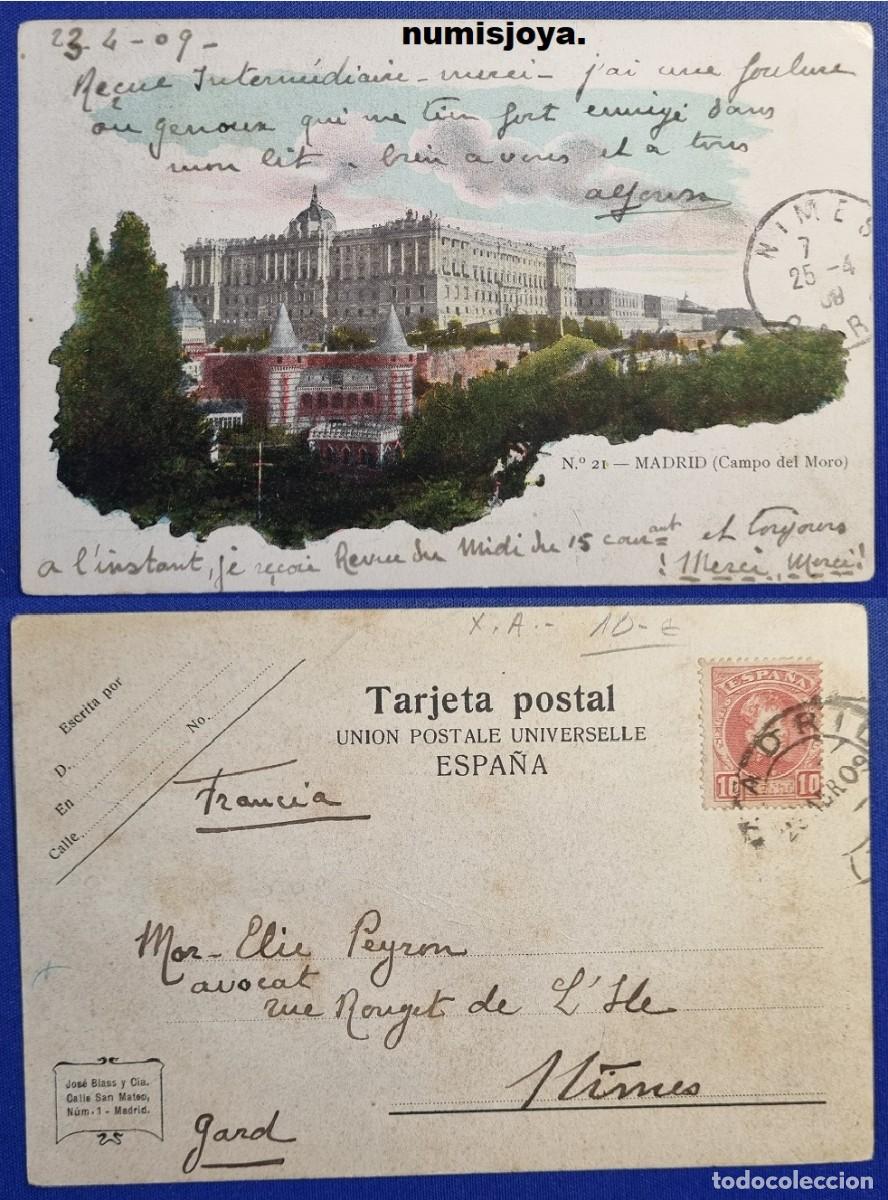 numisjoya.
23-4-09-
Reçue Intermédiaire - merci - j'ai une foulure
au genoux qui me tien fort ennuyé dans
mon lit - bien a vous et a tous
NIMES
7
25-4
09
GARE
N.º 21 — MADRID (Campo del Moro)
a l'instant, je reçois Revue du Midi du 15 courant et toujours
! Merci, Merci !
X.A.- 10-€
Escrita por
D.
No.
En
Calle
Tarjeta postal
UNION POSTALE UNIVERSELLE
ESPAÑA
ESPAÑA
10 10
MADRID
ABR 09
Francia
Mor- Elie Peyron
avocat
rue Rouget de L'Ile
Nîmes
gard
José Blass y Cia.
Calle San Mateo,
Núm. 1 - Madrid.
todocoleccion